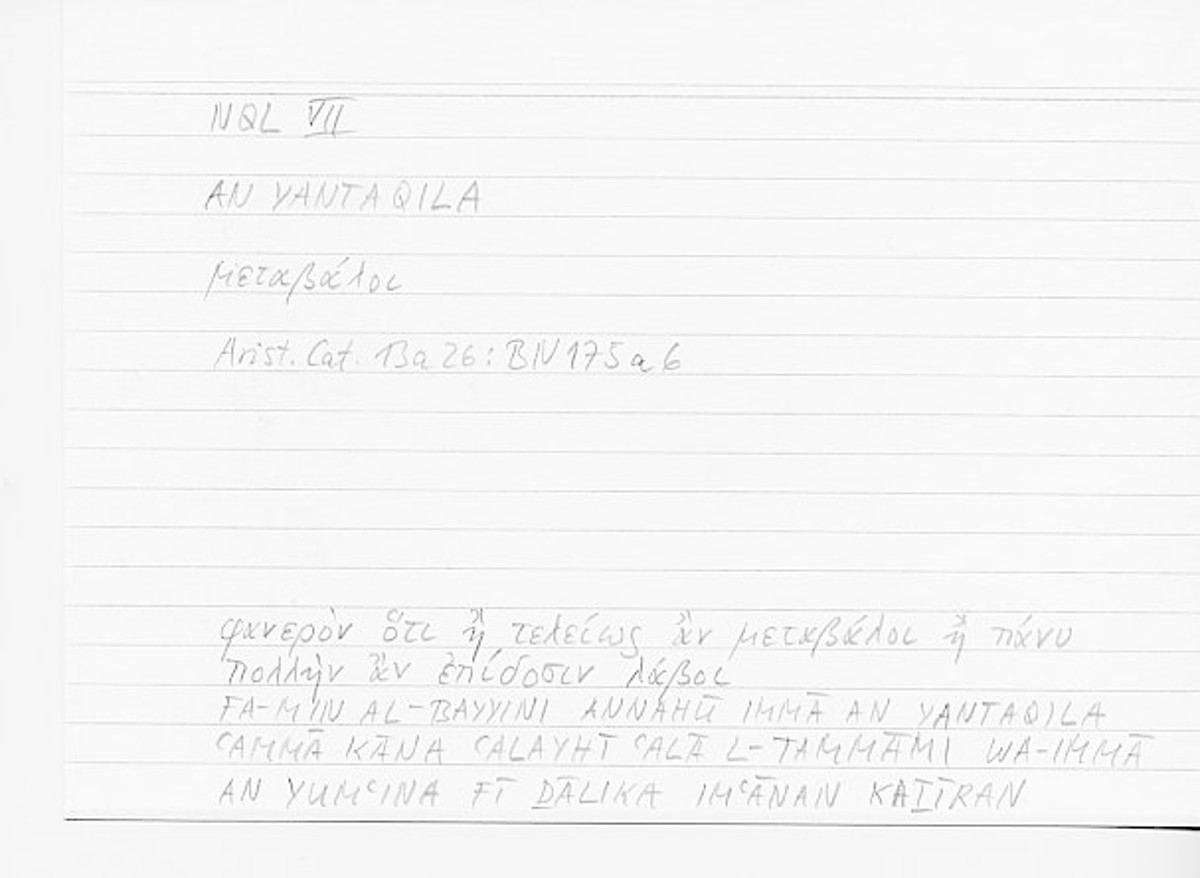 NQL VII
AN YANTAQILA
μεταβάλοι
Arist. Cat. 13a26: BN 175a6
φανερὸν ὅτι ἢ τελείως ἂν μεταβάλοι ἢ πάνυ
πολλὴν ἂν ἐπίδοσιν λάβοι
FA-MIN AL-BAYYINI ANNAHŪ IMMĀ AN YANTAQILA
ʿAMMĀ KĀNA ʿALAYHĪ ʿALĀ L-TAMMĀMI WA-IMMĀ
AN YUMʿINA FĪ ḎĀLIKA IMʿĀNAN KAṮĪRAN